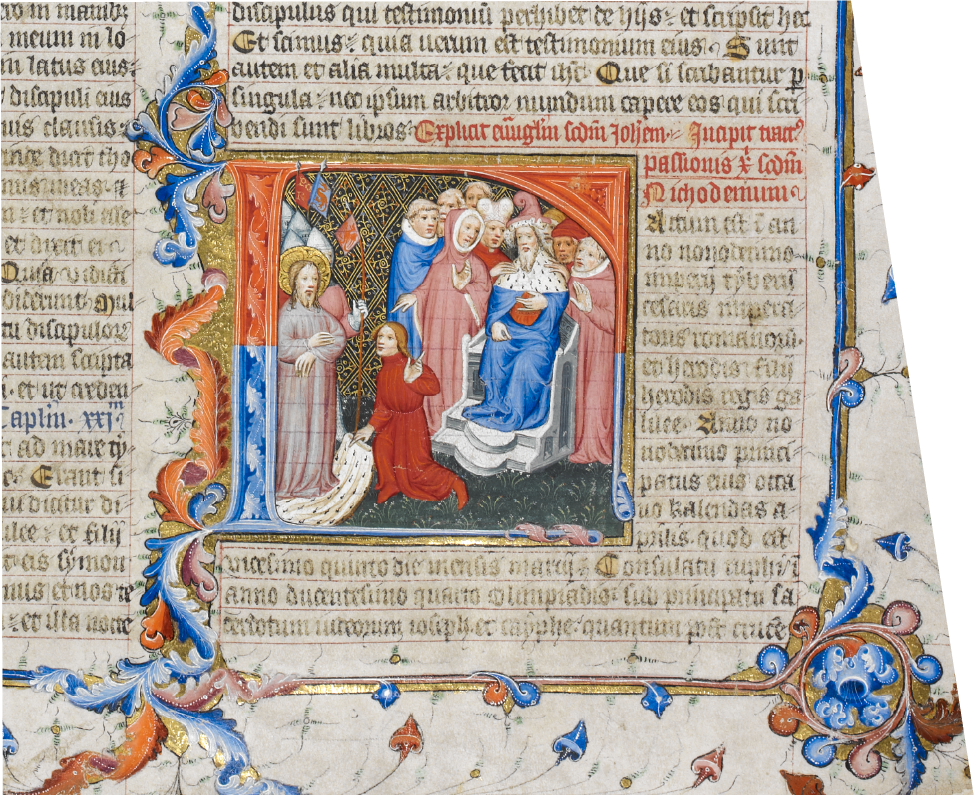 in manibz
meum in lo
latus eius:
discipuli eius
clausis:
dicit tho
meas: et
et noli esse
et dixit ei:
Quia vidisti
diderunt: Mul
discipulorz
autem scripta
et ut creden
Caplm. xxjm
ad mare ty
Erant si
dicitur di
lee: et filij
eis symon
nus et nos te
et illa nocte
discipulus qui testimoniū perhibet de hijs: et scripsit hec
Et scimus: quia uerum est testimonium eius. Sunt
autem et alia multa: que fecit ihc̄: Que si scribantur p̲
singula: nec ipsum arbitror mundum capere eos qui scri
bendi sunt libros: Explicit euūglm̄ scdm̄ Johēm. Incipit tractꝰ
passionis xp̄i scdm̄
Nichodemum.
Actum est ī an
no nonodecimo
imperij tyberij
cesaris impera
toris romanorū.
et herodis filij
herodis regis ga
lilee. Anno no
nodecimo princi
patus eius octa
uo kalendas a
prilis. quod est
vicesimo quinto die mensis marcij: Consulatu ruphi i
anno ducentesimo quarto olimpiadis: sub principatu sa
cerdotum iudeorum ioseph et cayphe: quantum post cruce